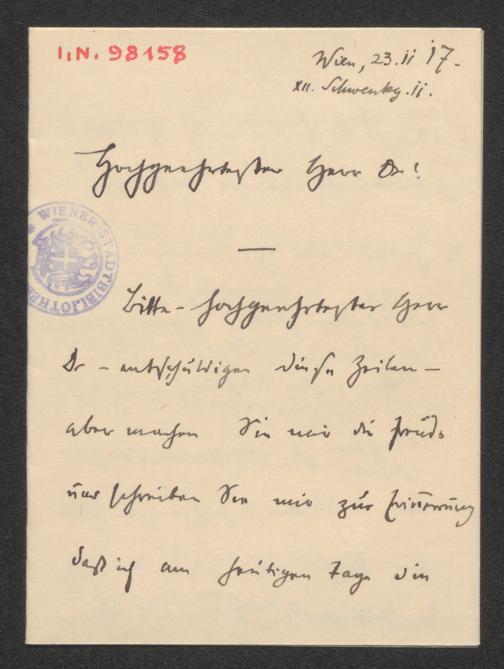 I.N. 98158
Wien, 23. II 17.
XII. Schwenkg. 11.
Hochgeehrtester Herr Dr!
WIENER STADTBIBLIOTHEK
Bitte – hochgeehrtester Herr
Dr – entschuldigen diese Zeilen –
aber machen Sie mir die Freude
und schreiben Sie mir zur Erinnerung
daß ich am heutigen Tage die